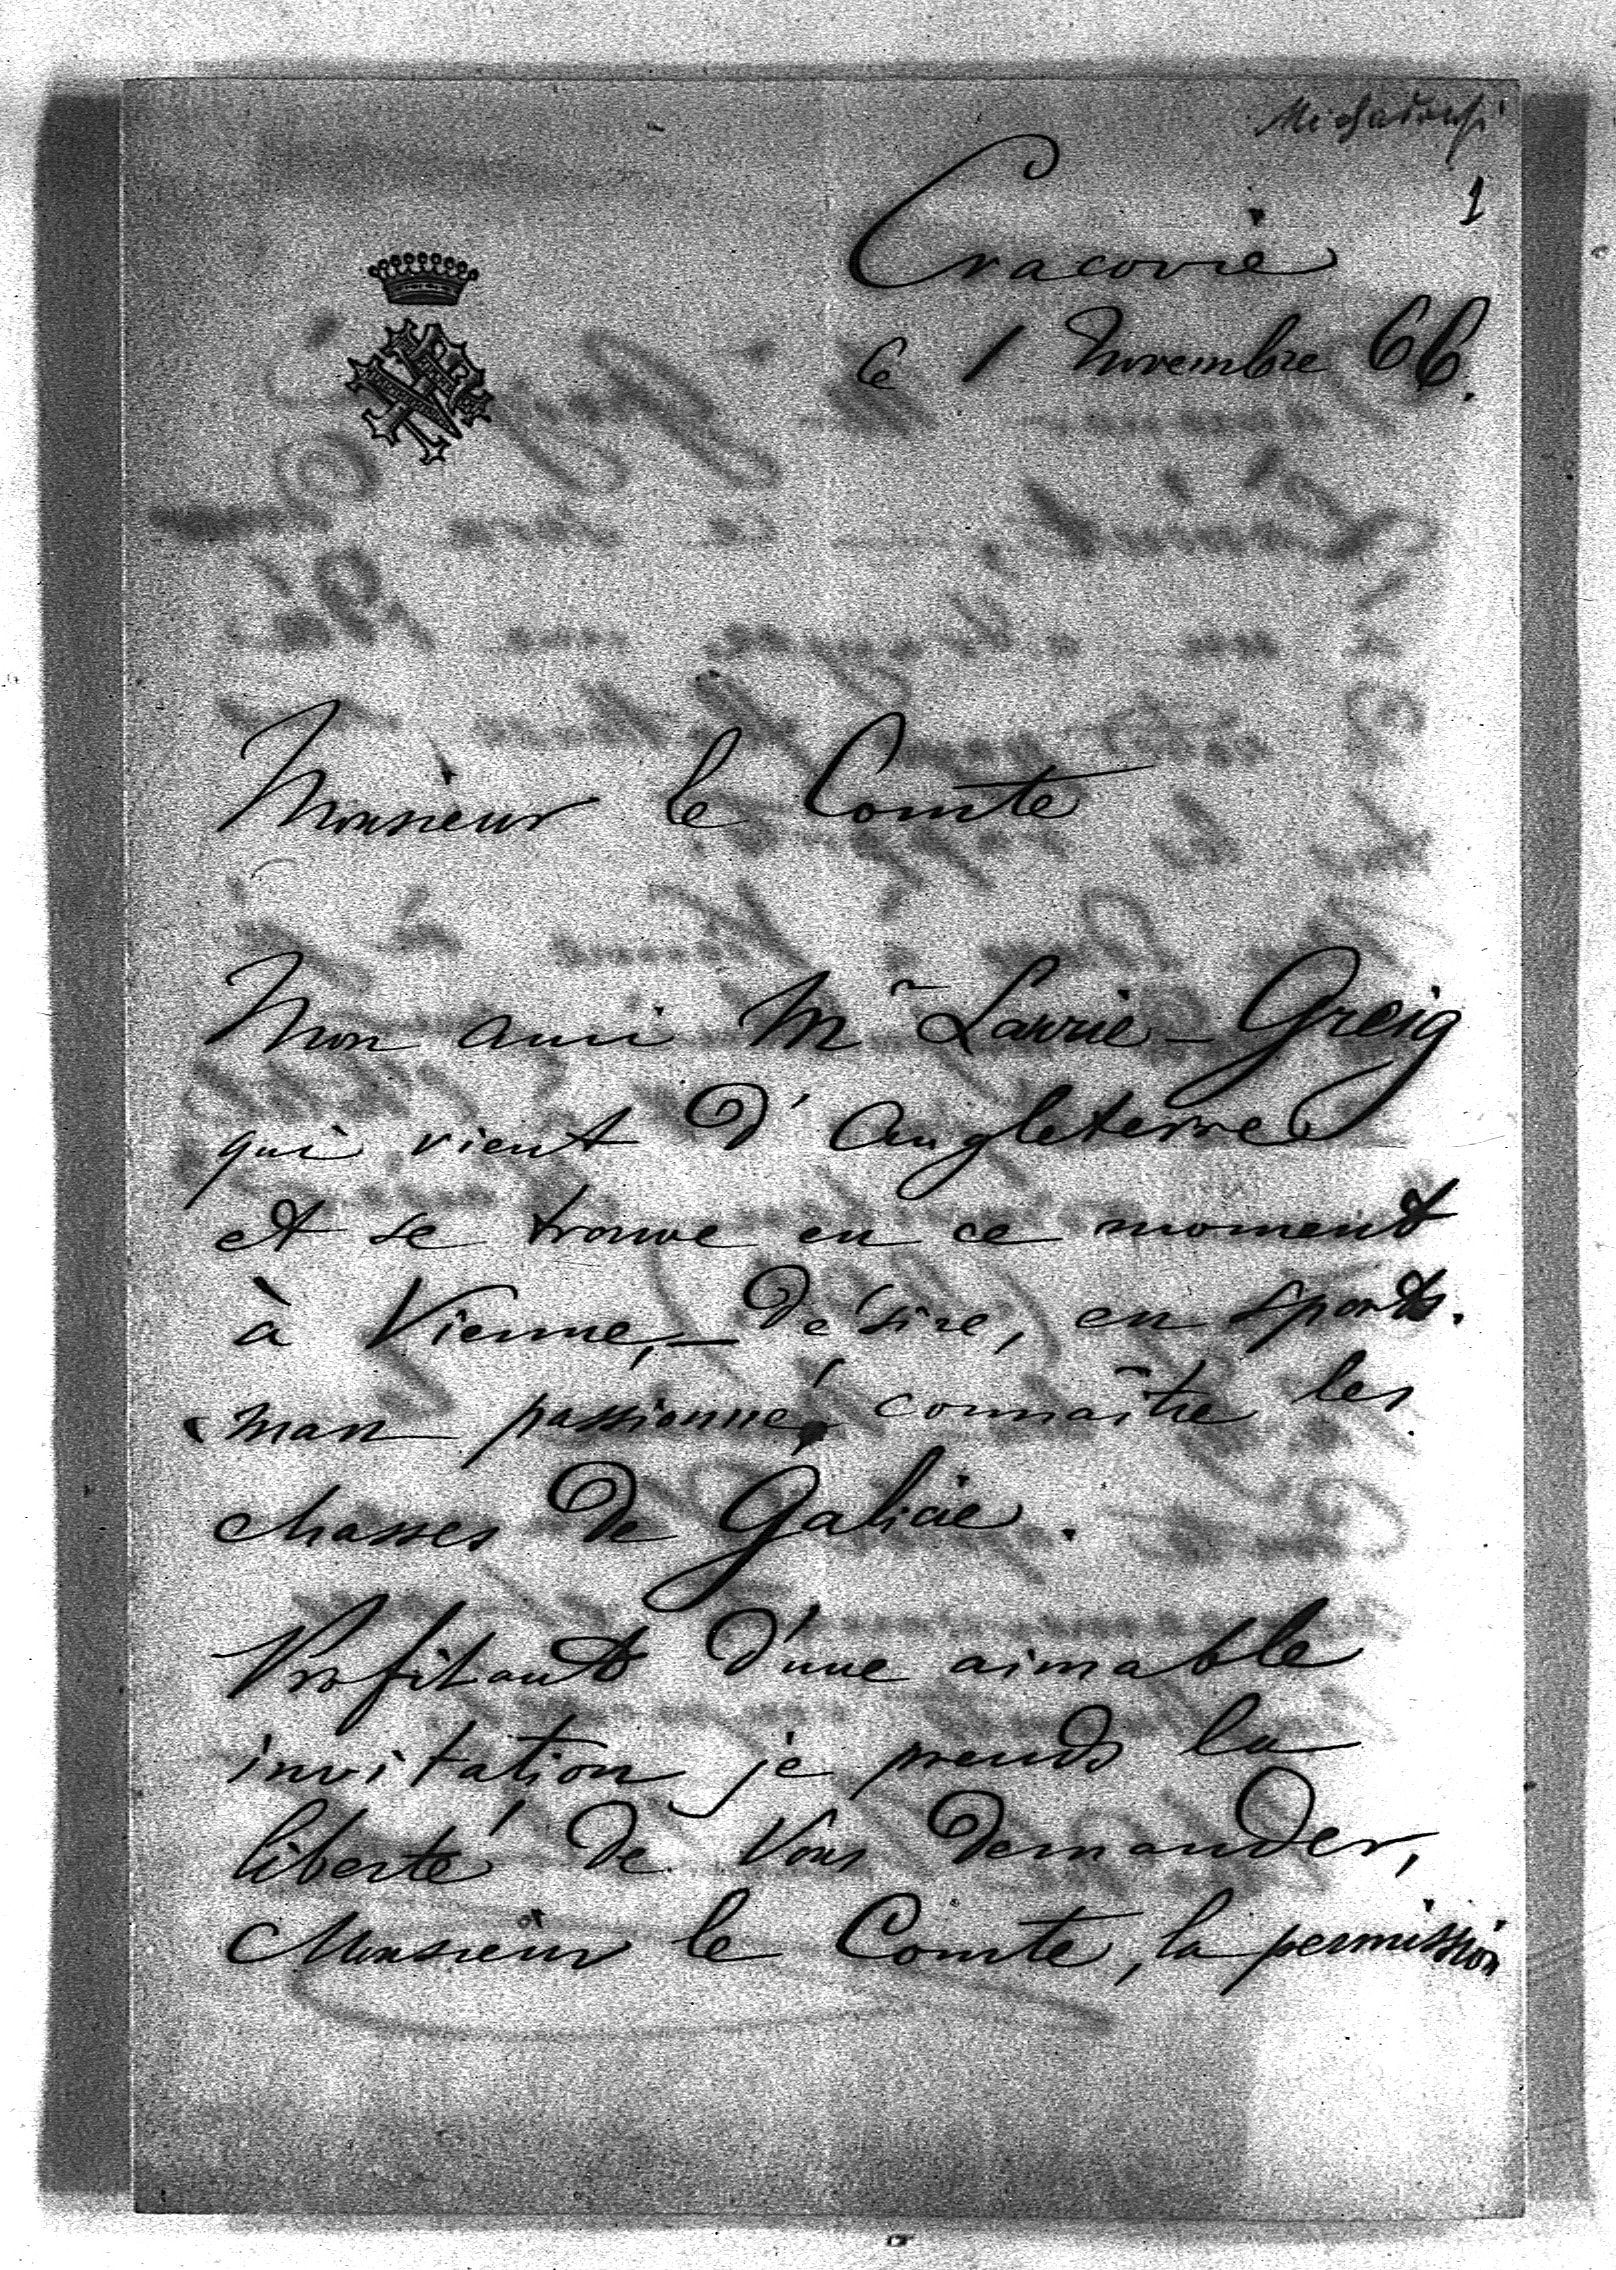 1
Cracovie
le 1 Novembre 66.
Monsieur le Comte
Mon ami Mr Lawrie-Greig
qui vient d'Angleterre
et se trouve en ce moment
à Vienne, désire, en sports-
man passionné, connaître les
chasses de Galicie.
Profitant d'une aimable
invitation je prends la
liberté de Vous demander,
Monsieur le Comte, la permission